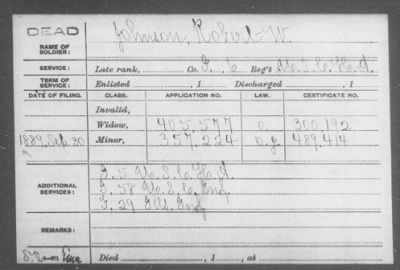 DEAD
NAME OF SOLDIER: Johnson, Robert W.
SERVICE: Late rank, Co. I, 6 Reg't U.S.C. H.A.
TERM OF SERVICE: Enlisted , 1 Discharged , 1
DATE OF FILING. CLASS. APPLICATION NO. LAW. CERTIFICATE NO.
Invalid,
Widow, 405,577 O 300,192
1889, 30 Minor, 357,224 O.G. 489,474
ADDITIONAL SERVICES: I. 5 U.S.C. H.A.
I. 58 U.S.C. Inf.
I. 29 Ills. Inf.
REMARKS:
Died , 1 , at